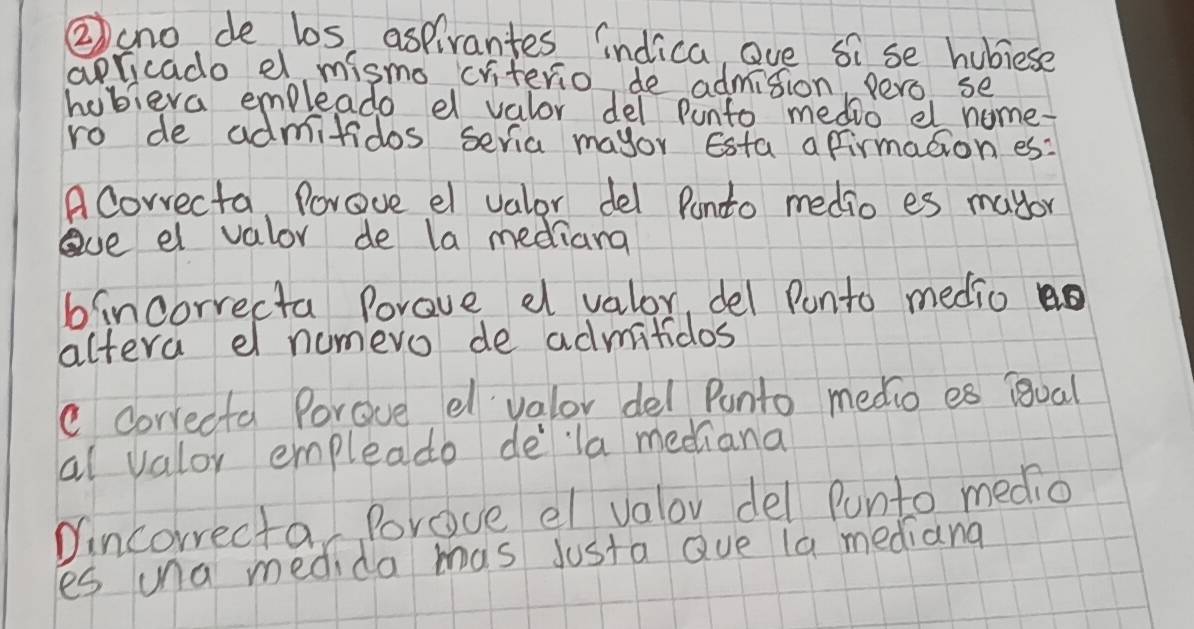 ② uno de los aspirantes indica, que si se hubiese
aplicado el mismo criterio de admision, pero se
hubiera empleado el valor del Punto medio el nume-
ro de admitidos seria mayor Esta afirmacion es:
A Correcta Porque el valor del Punto medio es mayor
que el valor de la mediana
b incorrecta Porque el valor del Punto medio no
altera el numero de admitidos
C correcta Porque el valor del Punto medio es igual
al valor empleado de la mediana
D incorrecta, Porque el valor del Punto medio
es una medida mas Justa que la mediana